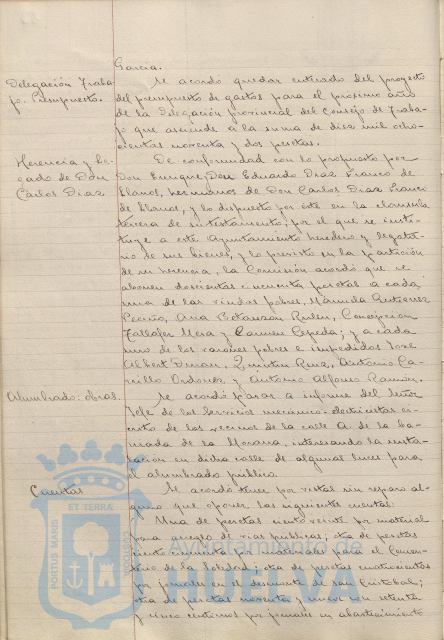 García.
Delegación Traba-
jo. Presupuesto.
Se acordó quedar enterado del proyecto
del presupuesto de gastos para el próximo año
de la Delegación provincial del Consejo de Traba-
jo que asciende á la suma de diez mil ocho-
cientas noventa y dos pesetas.
Herencia y le-
gado de Don
Carlos Díaz
De conformidad con lo propuesto por
Don Enrique, Don Eduardo Díaz Franco de
Llanos, hermanos de Don Carlos Díaz Franco
de Llanos, y lo dispuesto por éste en la cláusula
tercera de su testamento, por el que se insti-
tuye a este Ayuntamiento heredero y legata-
rio de sus bienes, y lo previsto en la partición
de su herencia, la Comisión acordó que se
abonen doscientas cincuenta pesetas a cada
una de las viudas pobres, Manuela Gutierrez
Ana Betanzon Rulen, Concepcion
Mesa y Carmen Cepeda; y a cada
uno de los varones pobres e impedidos José
Albert Duran, Quintin Ruiz, Antonio Ca-
rrillo Ordoñez y Antonio Alfonso Ramón.
Alumbrado: obras.
Se acordó pasar a informe del Señor
Jefe de los Servicios mecánico-electricistas es-
crito de los vecinos de la calle A. de la ba-
rriada de la Morana, interesando la insta-
lación en dicha calle de algunas luces para
el alumbrado público.
Cuentas
Se acordó tener por vistas sin reparo al-
guno que oponer, las siguientes cuentas:
Una de pesetas ciento veinte por material
para arreglo de vías publicas; otra de pesetas
ciento cincuenta por materiales para el Cemen-
terio de la Soledad; otra de pesetas cuatrocientas
por jornales en el desmonte de San Cristobal;
otra de pesetas noventa y nueve con setenta
y cinco centimos por jornales en abastecimiento
PORTUS MARIS
ET TERRÆ
CUSTODIA
Ayuntamiento de